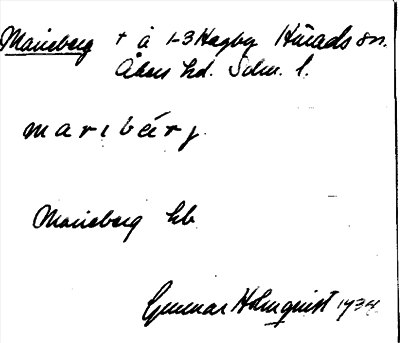 Marieberg t å 1-3 Hagby Härads sn.
Åkers hd. Södm. l.
maribärj.
Marieberg hb
Gunnar Holmquist 1934